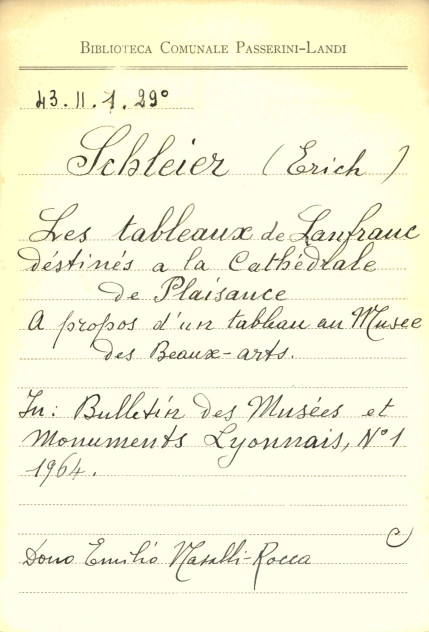 BIBLIOTECA COMUNALE PASSERINI-LANDI
43.II.1.29°
Schleier (Erich)
Les tableaux de Lanfranc
déstinés a la Cathédrale
de Plaisance
A propos d'un tableau au Musee
des Beaux-arts.
In: Bulletin des Musées et
Monuments Lyonnais, N°1
1964.
C
Dono Emilio Nasalli-Rocca